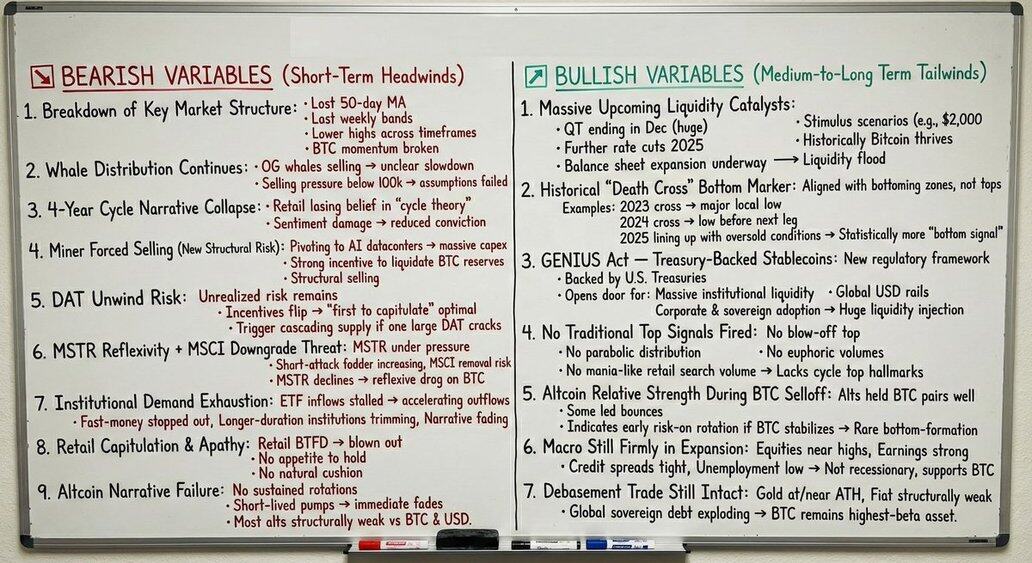 BEARISH VARIABLES (Short-Term Headwinds)
1. Breakdown of Key Market Structure: • Lost 50-day MA
• Last weekly bands
• Lower highs across timeframes
• BTC momentum broken
2. Whale Distribution Continues: • OG whales selling → unclear slowdown
• Selling pressure below 100k → assumptions failed
3. 4-Year Cycle Narrative Collapse: • Retail lasing belief in "cycle theory"
• Sentiment damage → reduced conviction
4. Miner Forced Selling (New Structural Risk): Pivoting to AI dataconters → massive capex
• Strong incentive to liquidate BTC reserves
• Structural selling
5. DAT Unwind Risk: Unrealized risk remains
• Incentives flip → "first to capitulate" optimal
• Trigger cascading supply if one large DAT cracks
6. MSTR Reflexivity + MSCI Downgrade Threat: MSTR under pressure
• Short-attack fodder increasing, MSCI removal risk
• MSTR declines → reflexive drog on BTC
7. Institutional Demand Exhaustion: ETF inflows stalled → accelerating outflows
• Fast-money stopped out, Longer-duration institutions trimming, Narrative fading
8. Retail Capitulation & Apathy: Retail BTFD → blown out
• No appetite to hold
• No natural cushion
9. Altcoin Narrative Failure: No sustained rotations
• Short-lived pumps → immediate fades
• Most alts structurally weak vs BTC & USD.
BULLISH VARIABLES (Medium-to-Long Term Tailwinds)
1. Massive Upcoming Liquidity Catalysts:
• QT ending in Dec (huge)
• Further rate cuts 2025
• Balance sheet expansion underway → Liquidity flood
• Stimulus scenarios (e.g., $2,000
• Historically Bitcoin thrives
2. Historical "Death Cross" Bottom Marker: Aligned with bottoming zones, not tops
Examples: 2023 cross → major local low
2024 cross → low before next leg
2025 lining up with oversold conditions → Statistically more "bottom signal"
3. GENIUS Act — Treasury-Backed Stablecoins: New regulatory framework
• Backed by U.S. Treasuries
• Opens door for: Massive institutional liquidity • Global USD rails
Corporate & sovereign adoption → Huge liquidity injection
4. No Traditional Top Signals Fired: No blow-off top
• No parabolic distribution • No euphoric volumes
• No mania-like retail search volume → Lacks cycle top hallmarks
5. Altcoin Relative Strength During BTC Selloff: Alts held BTC pairs well
• Some led bounces
• Indicates early risk-on rotation if BTC stabilizes → Rare bottom-formation
6. Macro Still Firmly in Expansion: Equities near highs, Earnings strong
• Credit spreads tight, Unemployment low → Not recessionary, supports BTC
7. Debasement Trade Still Intact: Gold at/near ATH, Fiat structurally weak
• Global sovereign debt exploding → BTC remains highest-beta asset.